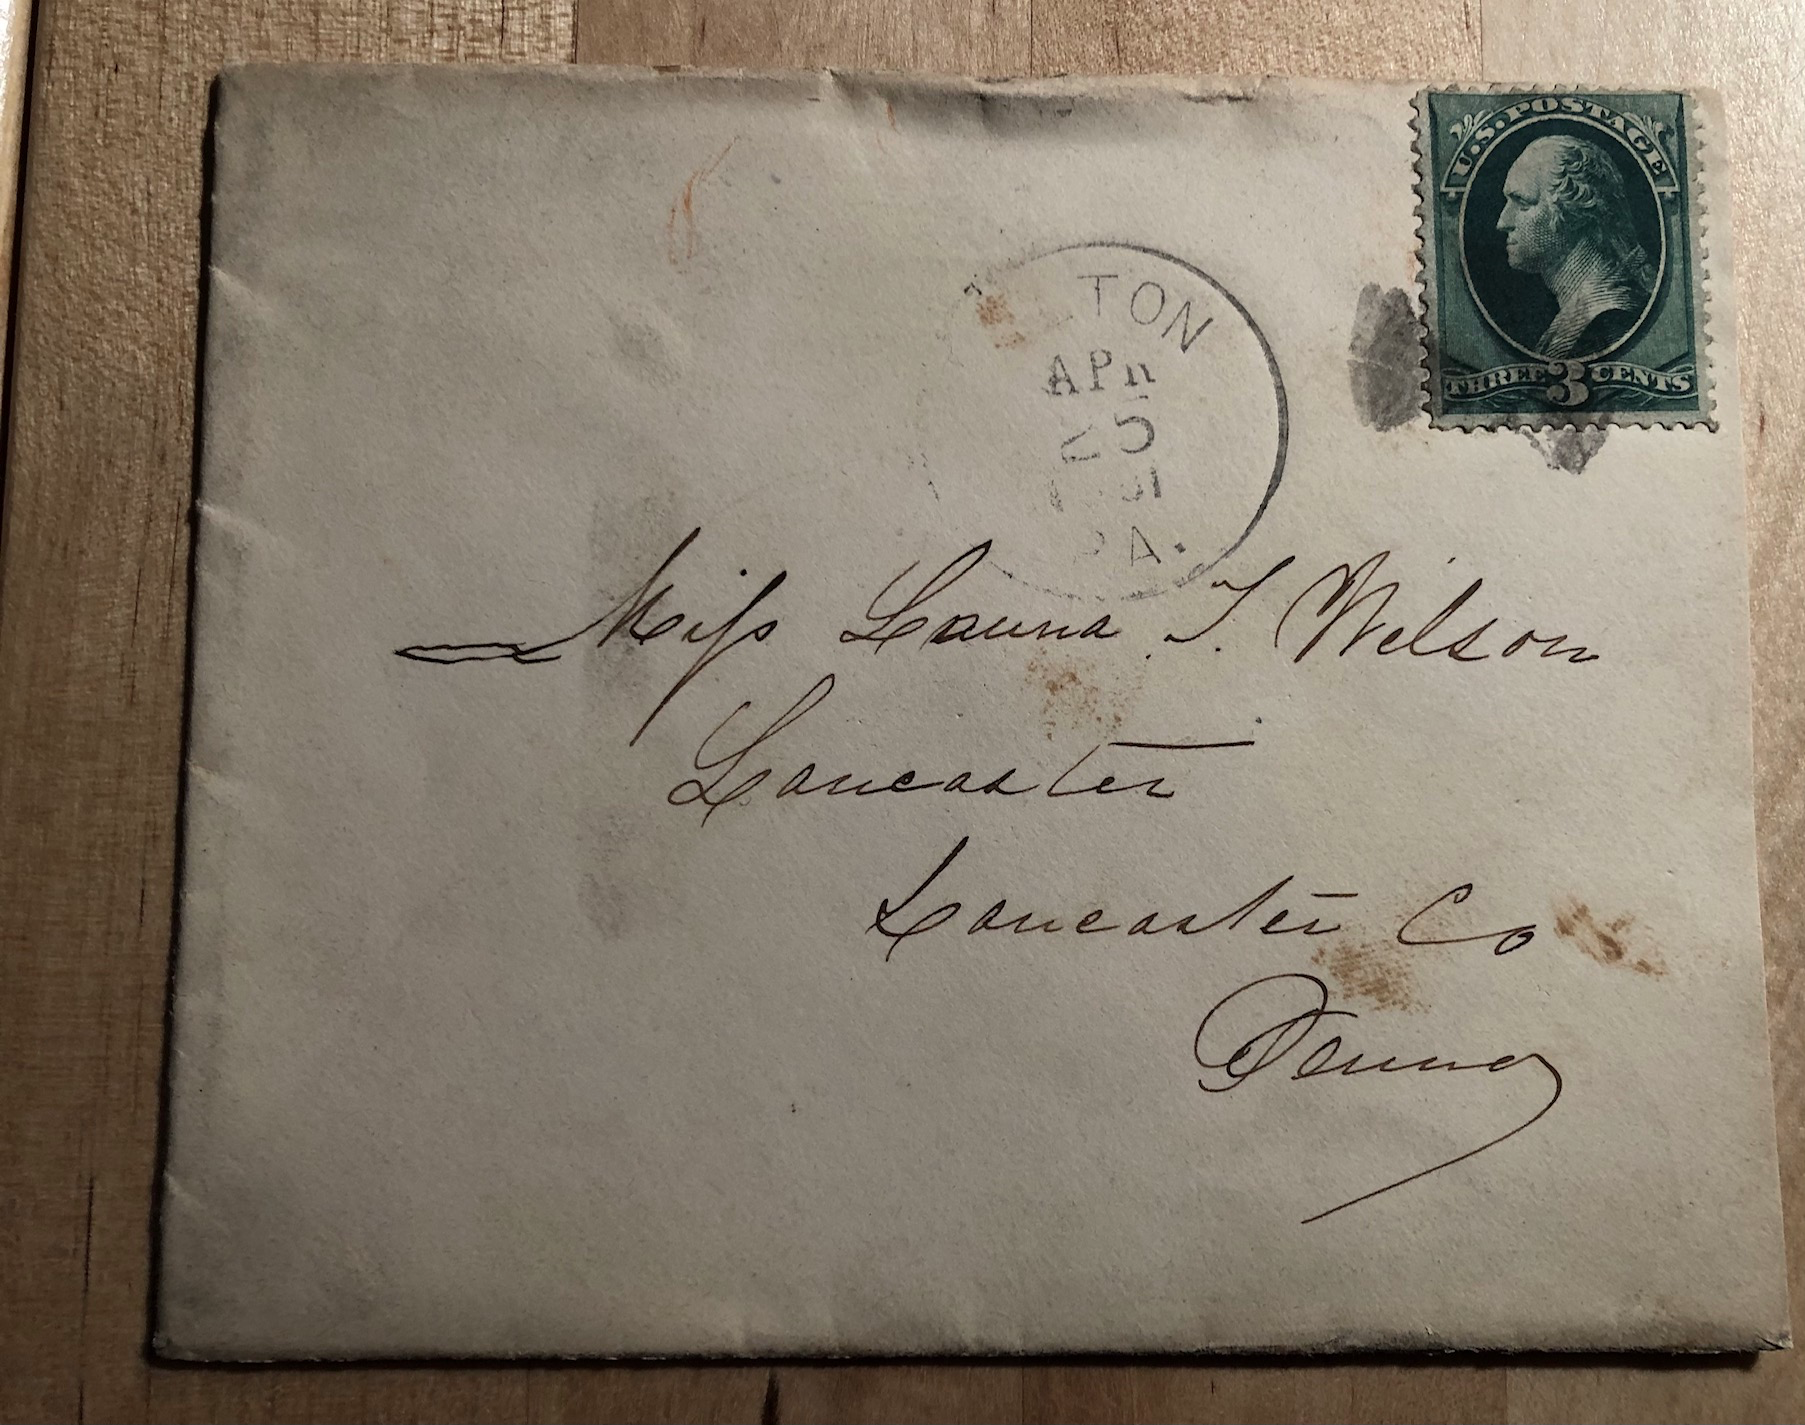 U.S. POSTAGE
THREE 3 CENTS
TON
APR
25
PA.
Miss Launa T. Wilson
Lancaster
Lancaster Co
Penna